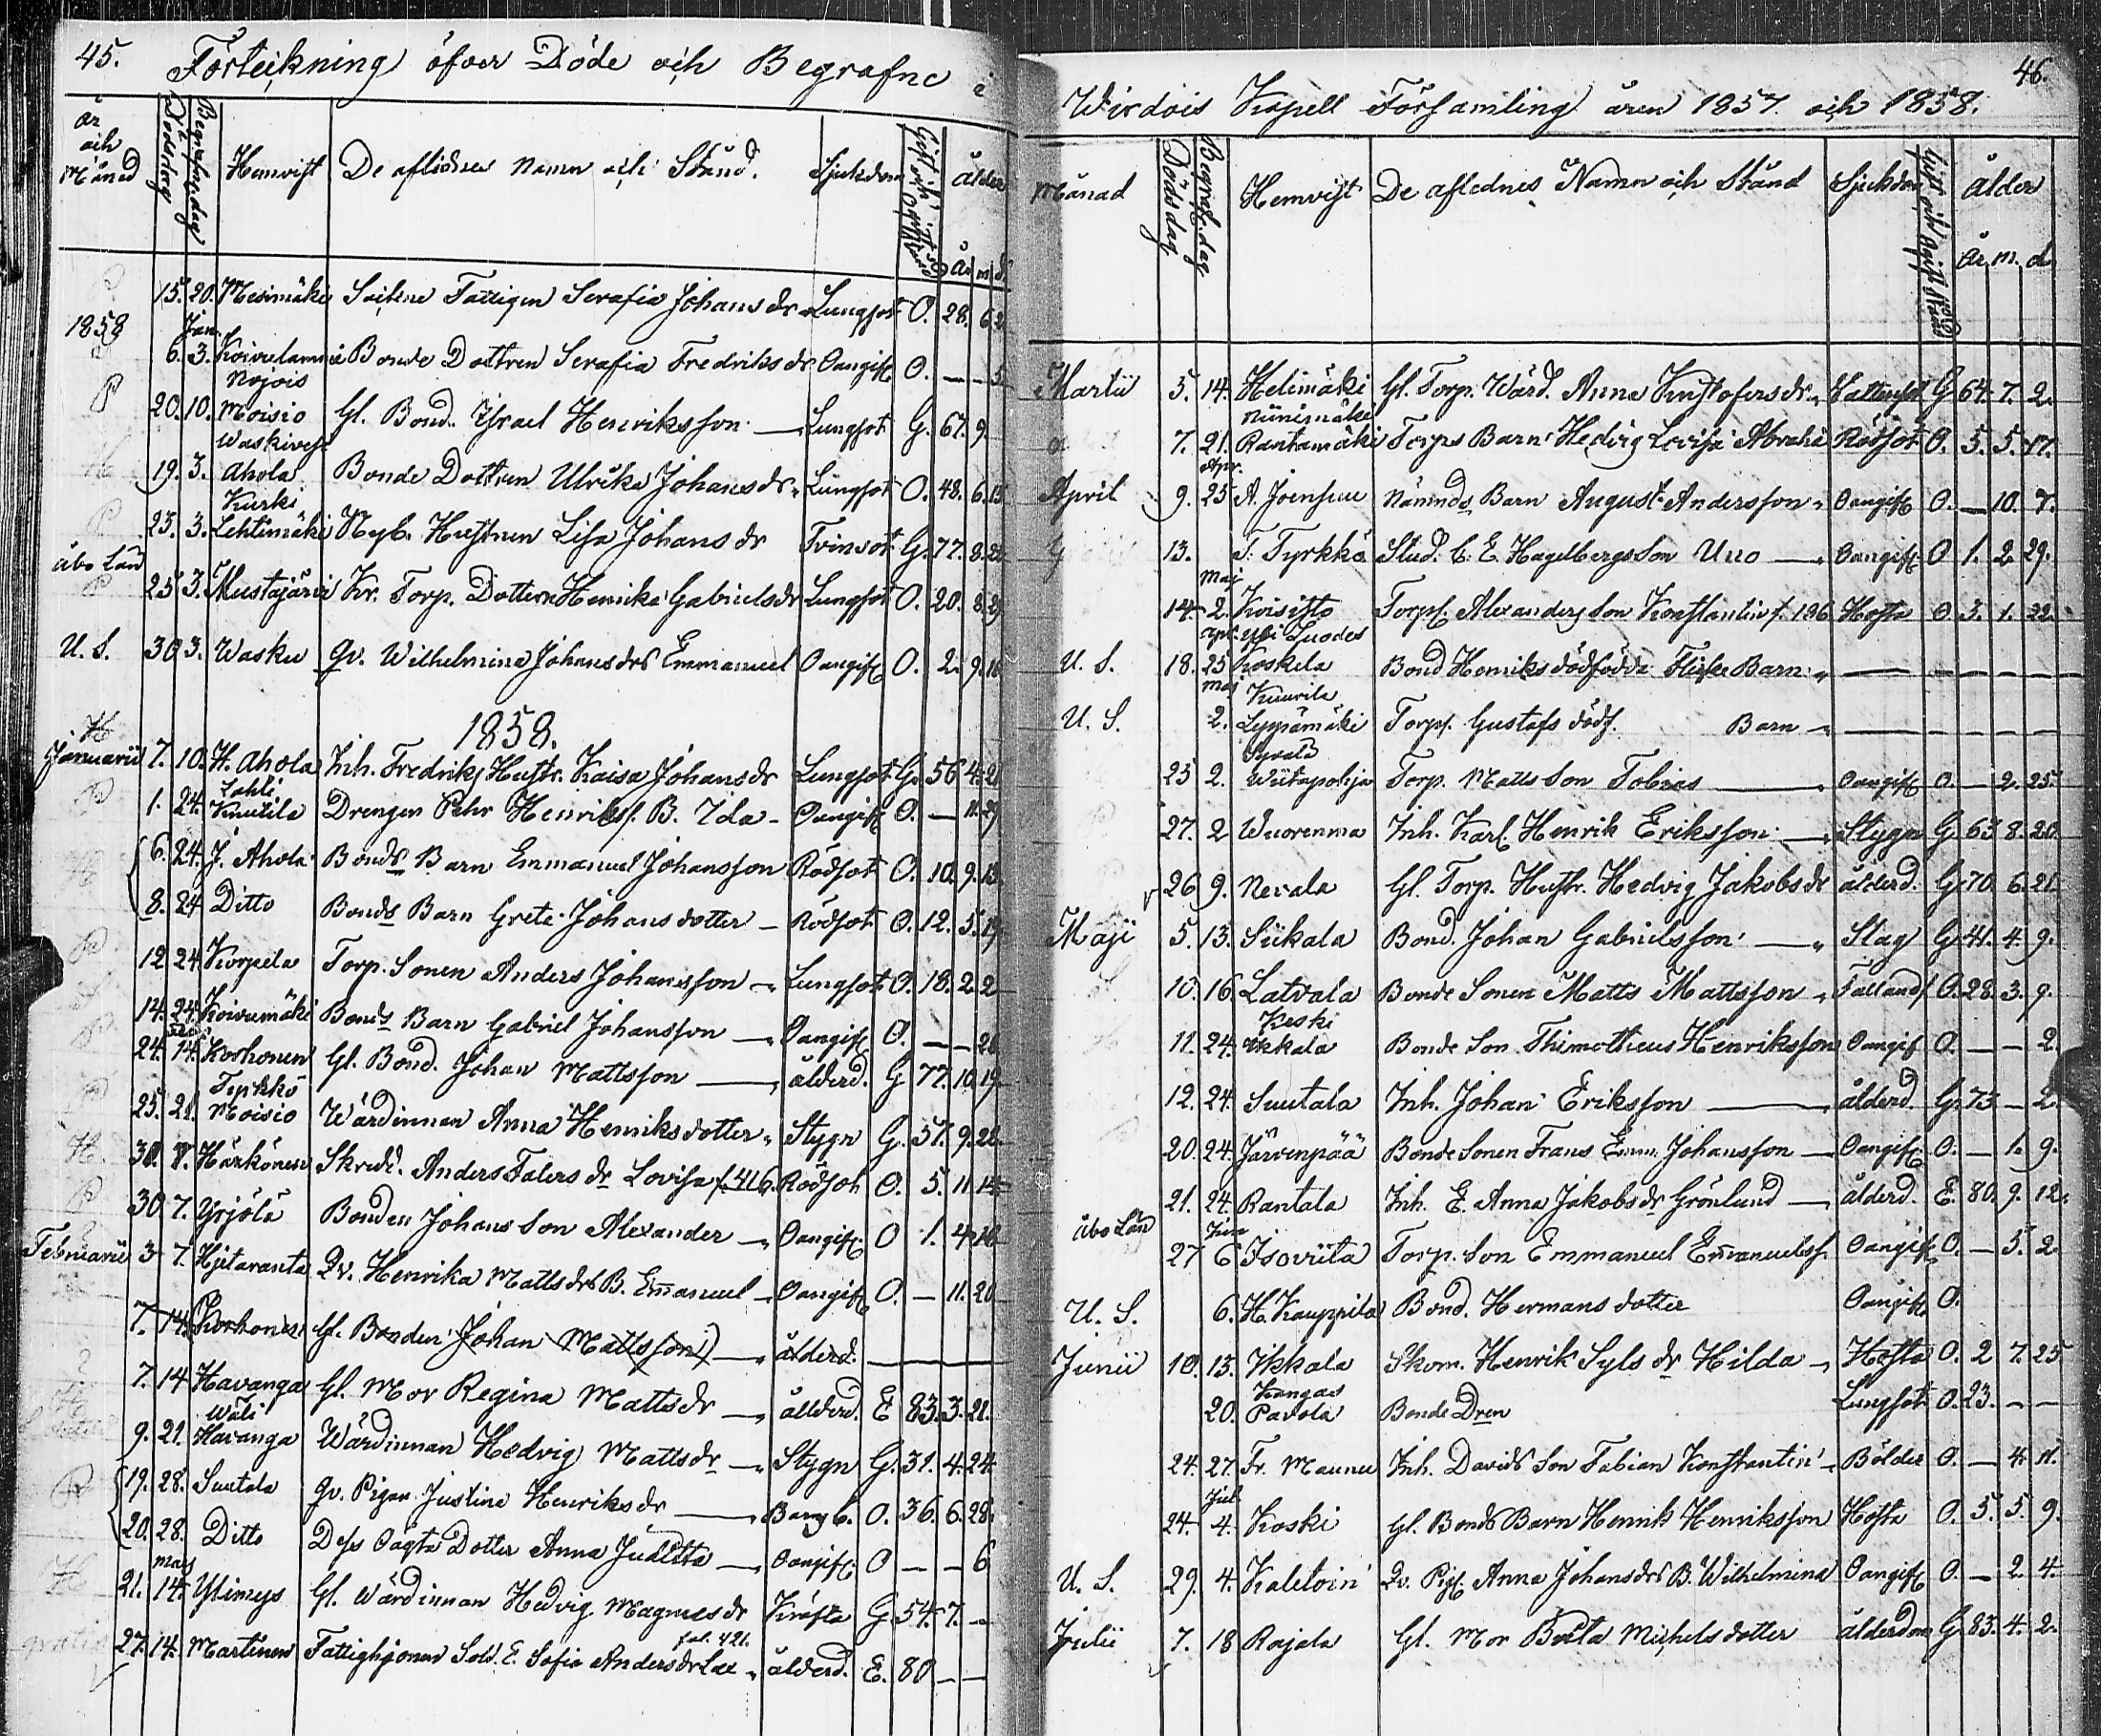 45. Förteckning öfver Döde och Begrafne i
år och Månad Dödsdag Begrafn.dag Hemvist De aflidnes Namn och Stånd. Sjukdom Gift och Ogift Stånd ålder
år m. d.
15. 20. Mesimäki Sochne Fattigen Serafia Johans dr Lungsot O. 28. 6
1858 Jan.
6. 3. Koivulammi Bonde Dottren Serafia Fredriks dr Oangif. O. — — 5
Nojois
20. 10. Moisio Gl. Bond. Israel Henriksson — Lungsot G. 67. 9.
Waskivesi
19. 3. Ahola Bonde Dottren Ulrika Johans dr. Lungsot O. 48. 6. 15
Kurki
23. 3. Lehtimäki Nyb. Hustrun Lisa Johans dr Tvinsot G. 77. 8. 25
åbo Län
25 3. Mustajärvi Kr. Torp. Dottern Henrika Gabriels dr Lungsot O. 20. 8. 29
U. S. 30 3. Wasku Qv. Wilhelmina Johans drs Emmanuel Oangif. O. 2. 9. 18
1858.
Januarii 7. 10. H. Ahola Inh. Fredriks Hustr. Kaisa Johans dr Lungsot G. 56 4. 21
Lahti
1. 24. Knutila Drengen Pehr Henrikss. B. Ida — Oangif. O. — 11. 29
6. 24. J. Ahola Bonds Barn Emmanuel Johansson Rödsot O. 10. 9. 13.
8. 24 Ditto Bonds Barn Greta Johans dotter — Rödsot O. 12. 5. 19
12 24 Korpela Torp. Sonen Anders Johansson — Lungsot O. 18. 2. 2
14. 24. Koivumäki Bonds Barn Gabriel Johansson — Oangif. O. — — 28
24. 14. Korhonen Gl. Bond. Johan Mattsson — ålderd. G 77. 10. 19.
Tyrkkö
25. 21. Moisio Wärdinnan Anna Henriks dotter. Stygn G. 57. 9. 22.
30. 7. Härkönen Skredd. Anders Falers dr Lovisa f. 416. Rödsot O. 5. 11. 14
30. 7. Yrjölä Bonden Johans Son Alexander — Oangif. O 1. 4. 18
Februarii 3 7. Hjetaranta Qv. Henrika Matts drs B. Emanuel — Oangif. O. — 11. 20
7. 14. Korhonen Gl. Bonden Johan Mattsson — ålderd. —
7. 14 Havanga Gl. Mor Regina Matts dr — ållderd. E 83. 3. 21.
Wäli
9. 21. Havanga Wärdinnan Hedvig Matts dr — Stygn G. 31. 4. 24
19. 28. Suutala Qv. Pigan Justina Henriks dr — Barnsb. O. 36. 6. 28.
20. 28. Ditto Dess Oägta Dotter Anna Juditta — Oangif. O — — 6
mars
21. 14. Ylimys Gl. Wärdinnan Hedvig Magnus dr Kräfta G. 54. 7. —
fol. 421.
27. 14. Martinen Fattighjonen Sold. E. Sofia Anders dr Lax — ålderd. E. 80 — —
46.
Wirdois Kapell Församling åren 1857. och 1858.
Månad Dödsdag Begraf.dag Hemvist De aflednes Namn och Stånd Sjukdom Gift och Ogift Stånd ålder
år. m. d.
Martii 5. 14. Helimäki Gl. Torp. Wärd. Anna Kristofers dr. Vattensot G 64. 7. 2.
Niinimäki
7. 21. Rantamäki Torps Barn Hedvig Lovisa Abrahs Rödsot O. 5. 5. 17.
Apr.
April 9. 25 A. Joensuu Nämnds Barn August Andersson Oangif. O. — 10. 7.
13. T. Tyrkkö Stud. C. E. Hagelbergs Son Uno — Oangif. O 1. 2 29.
Maj
14. 2. Koisisto Torps. Alexanders Son Konstantin f. 196 Hosta O 3. 1. 22.
apr. Yli Luodes
U. S. 18. 25 Koskela Bond Henriks dödfödda Flicke Barn — — — —
Maj Kuurila
U. S. 2. Leppämäki Torps. Gustafs dödf. Barn — — — —
Syvälä
23 2. Wiitapohja Torp. Matts Son Tobias — Oangif. O. — 2. 25.
27. 2 Wuorenmaa Inh. Karl Henrik Eriksson — Stygn G 63 8. 20.
26 9. Nevala Gl. Torp. Hustr. Hedvig Jakobs dr ålderd. G 70 6. 21.
Maji 5. 13. Siikala Bond. Johan Gabrielsson — Slag G 41. 4. 9.
10. 16. Latvala Bonde Sonen Matts Mattsson Falland. O. 28. 3. 9.
Keski
11. 24. Ikkala Bonde Son Thimotheus Henriksson Oangif O. — — 2.
12. 24. Suutala Inh. Johan Eriksson — ålderd. G 73 — 2.
20. 24. Järvenpää Bonde Sonen Frans Emm. Johansson — Oangif. O. — 1. 9.
21. 24. Rantala Inh. E. Anna Jakobs dr Grönlund — ålderd. E. 80. 9. 12.
åbo Län Jun
27 6 Isoviita Torp. Son Emmanuel Emanuelss. Oangif. O. — 5. 2
U. S. 6. H. Kauppila Bond. Hermans dotter Oangif. O.
Junii 10. 13. Ikkala Skom. Henrik Syls dr Hilda — Hosta O. 2 7. 25
Kangas
20. Pavola Bonde Dren Lungsot O. 23. — —
24. 27. Fr. Maunu Inh. Davids Son Fabian Konstantin — Bölder O. — 4. 11.
Jul.
24. 4. Koski Gl. Bonds Barn Henrik Henriksson Hosta O. 5. 5. 9.
U. S. 29. 4. Kaletoin Qv. Pig. Anna Johans drs B. Wilhelmina Oangif. O. — 2. 4.
Julii 7. 18 Rajala Gl. Mor Beata Michels dotter ålderdom G 83. 4. 2.